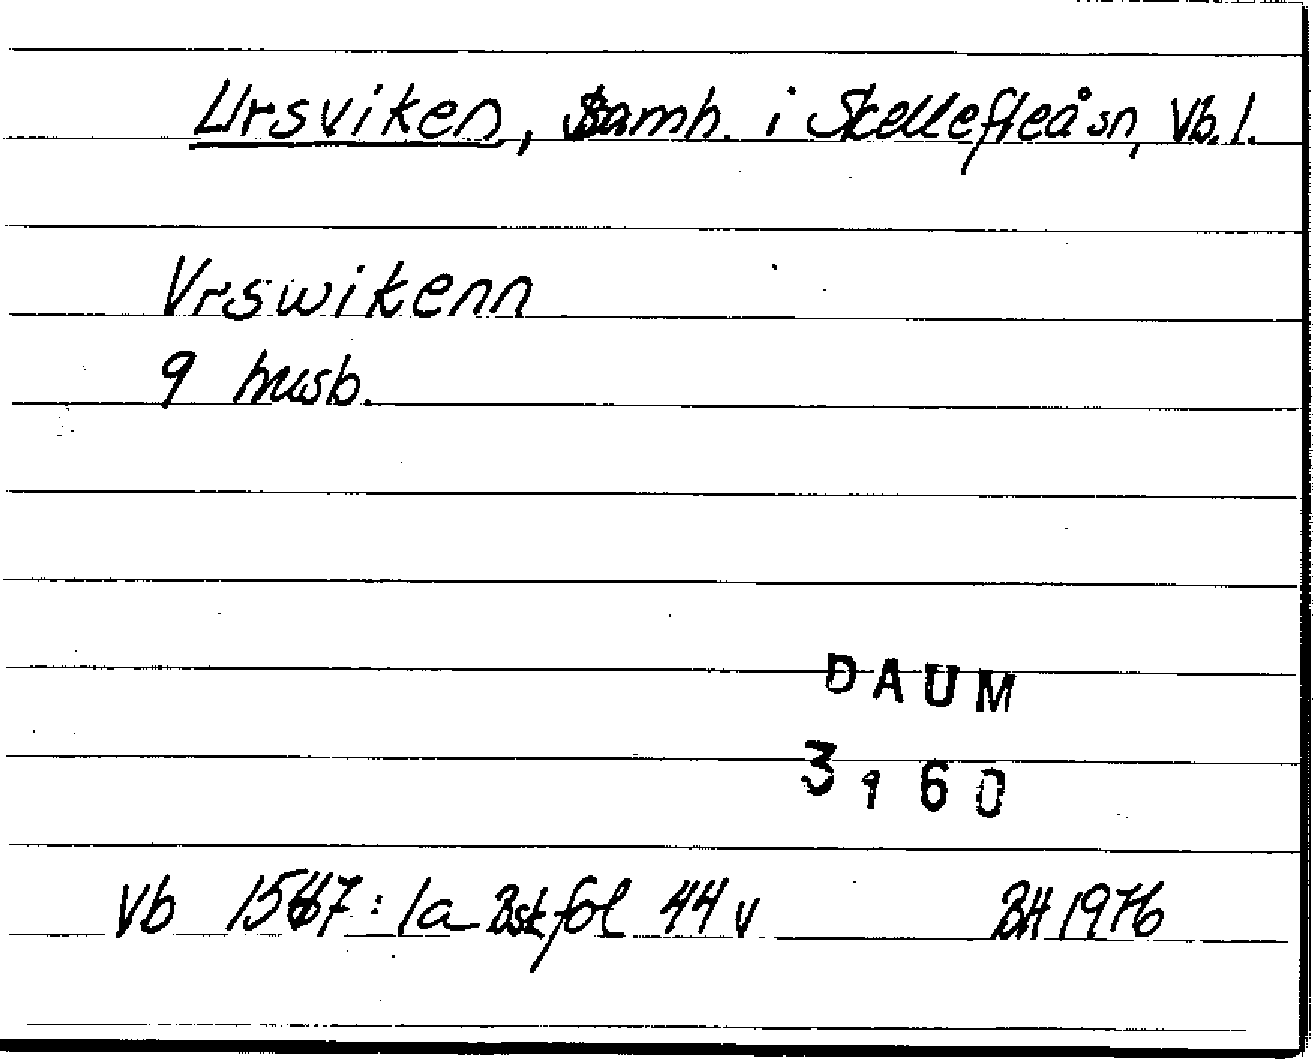 Ursviken, Samh. i Skellefteå sn, Vb. l.
Vrswikenn
9 husb.
DAUM
3160
Vb 1567: 1a Bsk fol 44 v BH 1976